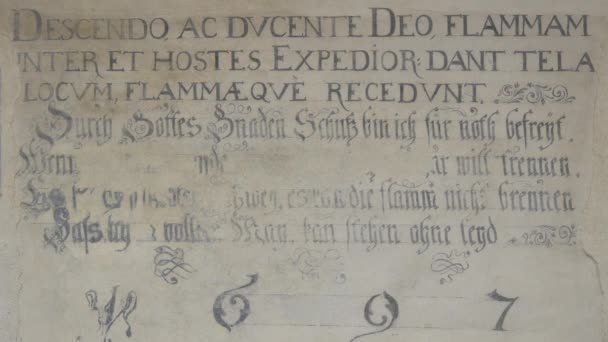 DESCENDO, AC DVCENTE DEO, FLAMMAM
INTER ET HOSTES EXPEDIOR: DANT TELA
LOCVM, FLAMMÆQVÈ RECEDVNT.
Durch Gottes Gnaden Schutz bin ich für noth befreyt.
Wem will trennen,
die flamm nicht brennen
May, kan stehen ohne leyd
1697